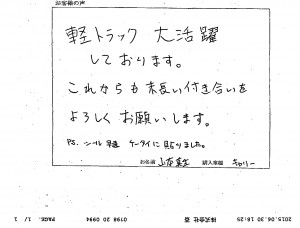 お客様の声
軽トラック 大活躍
しております。
これからも末長い付き合いを
よろしくお願いします。
P.S. シール 早速 ケータイに貼りました。
お名前
購入車種 キャリー
2015.06.30 18:25
株式会社
0798 20 0994
PAGE. 1/ 1